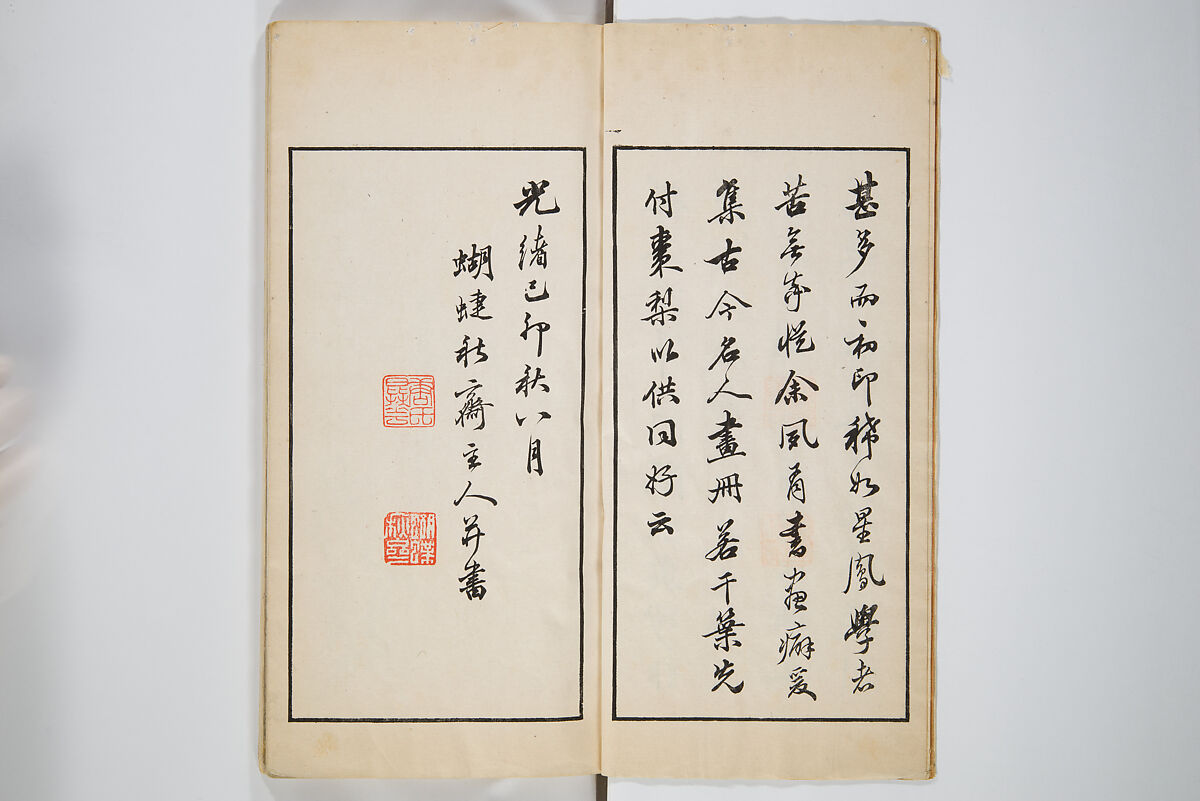 甚多而初印稀如星鳳學者
苦無從悅余夙有書畫癖爰
集古今名人畫冊若干葉先
付棗梨以供同好云
光緒己卯秋八月
蝴蜨秋齋主人并書
蝴蝶秋齋